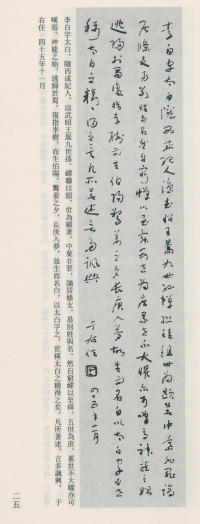 李白字太白隴西成紀人涼武昭王暠九世孫蟬聯珪組世為顯著中葉非罪謫
居條支易別姓與名然自窮蟬以至舜五世為庶累世不大曜亦可嘆焉神龍之始
逃歸於蜀復指李樹而生伯陽驚姜之夕長庚入夢故生而名白以太白字之世
稱太白之精得之矣凡所著述言多諷興 于右任 四十五年十一月
李白字太白，隴西成紀人，涼武昭王暠九世孫。蟬聯珪組，世為顯著。中葉非罪，謫居條支，易別姓與名。然自窮蟬以至舜，五世為庶，累世不大曜亦可
嘆焉。神龍之始，逃歸於蜀，復指李樹，而生伯陽。驚姜之夕，長庚入夢，故生而名白，以太白字之，世稱太白之精得之矣。凡所著述，言多諷興。 于
右任 四十五年十一月
二五